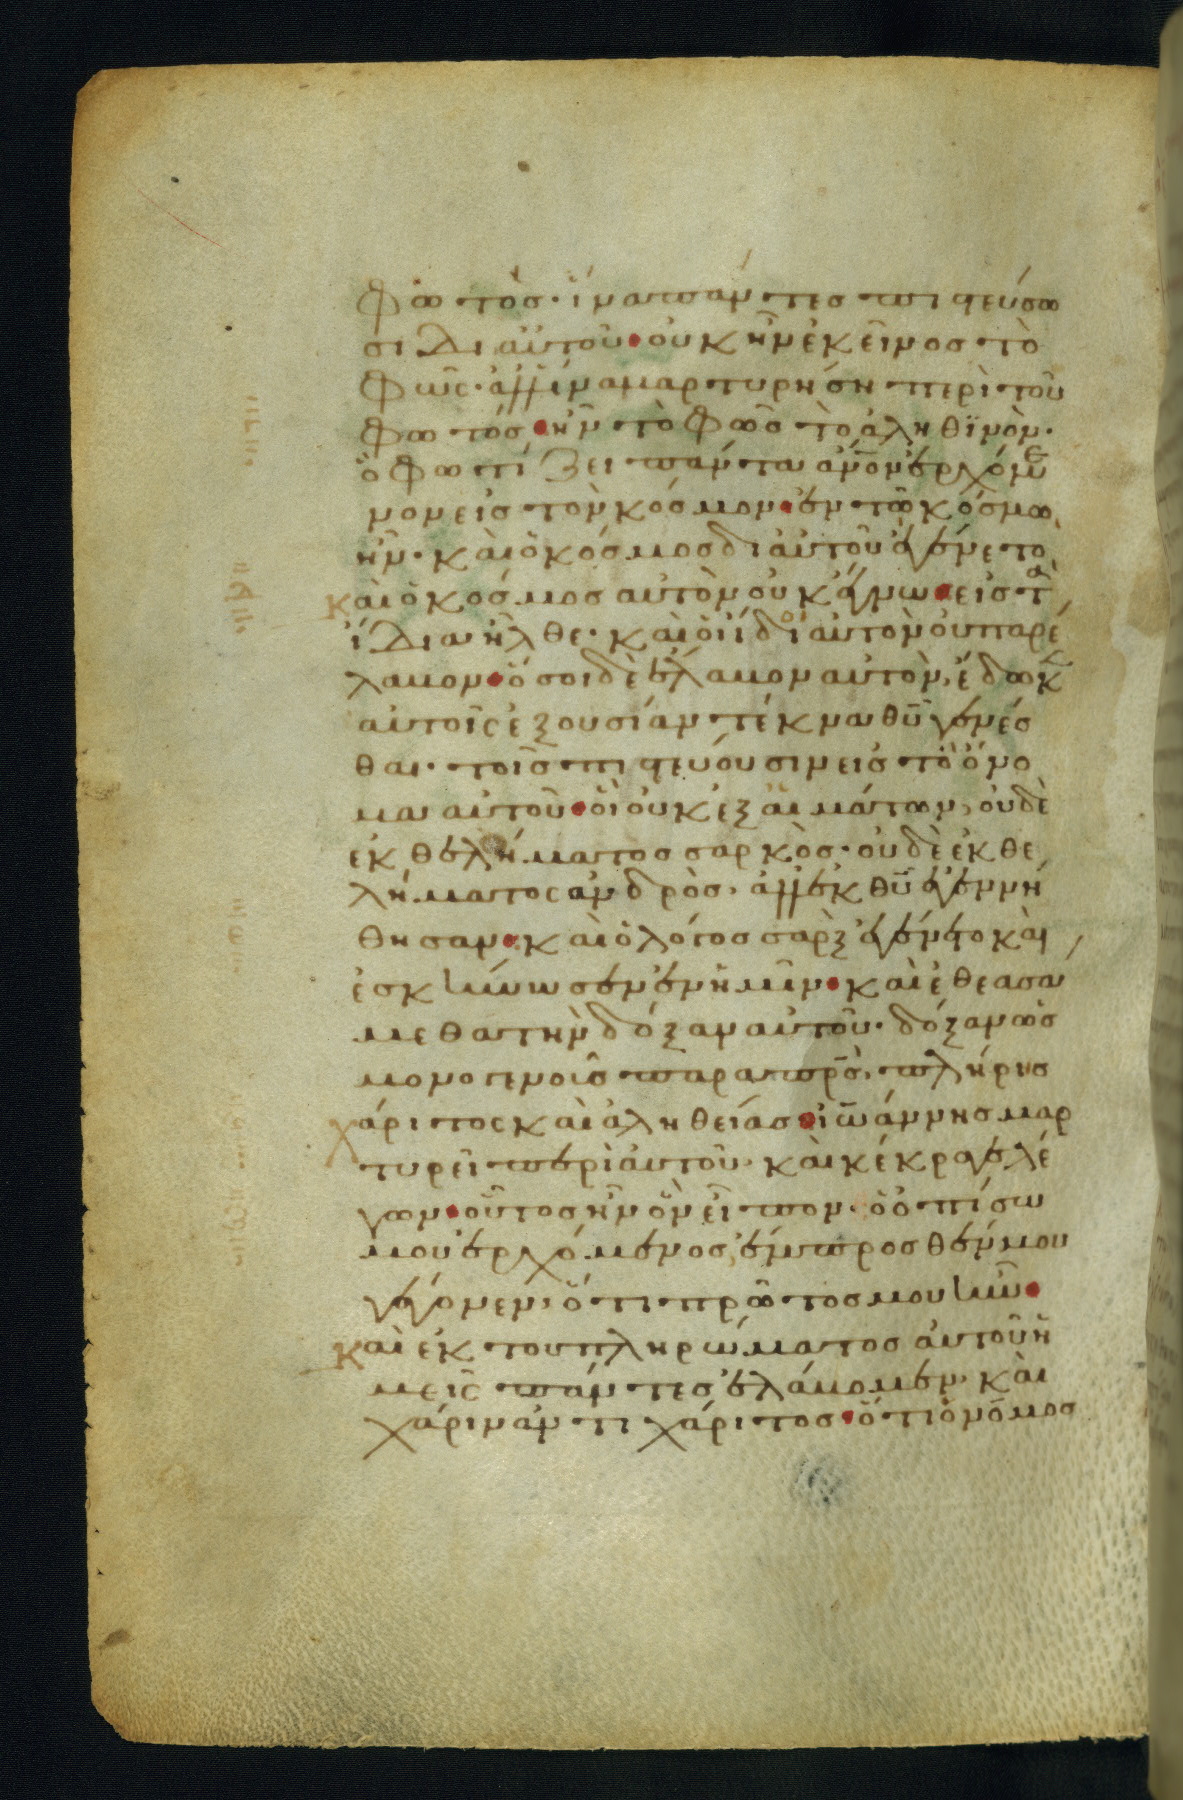 φωτὸς· ἵνα πάντες πιστεύσω
σι δι αὐτοῦ· οὐκ ἦν ἐκεῖνος τὸ
φῶς· ἀλλ ἵνα μαρτυρήση περὶ τοῦ
φωτός· ἦν τὸ φῶς τὸ ἀληθϊνὸν·
ὃ φωτίζει πάντα ἄνον ἐρχόμε
νον εἰς τὸν κόσμον· ἐν τῶ κόσμω
ἦν· καὶ ὁ κόσμος δι αὐτοῦ ἐγένετο
καὶ ὁ κόσμος αὐτὸν οὐκ ἔγνω· εἰς τὰ
ἴδια ἦλθε· καὶ οἱ ἴδιοι αὐτὸν οὐ παρέ
λαβον· ὅσοι δὲ ἔλαβον αὐτὸν, ἔδωκεν
αὐτοῖς ἐξουσίαν τέκνα θῦ γενέσ
θαι· τοῖς πιστεύουσιν εἰς τὸ ὄνο
μα αὐτοῦ· οἳ οὐκ ἐξ αἱμάτων, οὐδὲ
ἐκ θελήματος σαρκὸς· οὐδὲ ἐκ θε
λήματος ἀνδρὸς· ἀλλ ἐκ θῦ ἐγεννή
θησαν· καὶ ὁ λόγος σὰρξ ἐγένετο καὶ
ἐσκήνωσεν ἐν ἡμῖν· καὶ ἐθεασά
μεθα τὴν δόξαν αὐτοῦ· δόξαν ὡς
μονογενοῖς παρα πρς, πλήρης
χάριτος καὶ ἀληθείας· ἰωάννης μαρ
τυρεῖ περὶ αὐτοῦ· καὶ κέκραγε λέ
γων· οὗτος ἦν ὃν εἶπον· ὁ ὀπίσω
μου ἐρχόμενος, ἔμπροσθέν μου
γέγονεν· ὅτι πρῶτος μου ἦν·
καὶ ἐκ του πληρώματος αὐτοῦ ἡ
μεῖς πάντες ἐλάβομεν· καὶ
χάριν ἀντι χάριτος· ὅτι ὁ νόμος